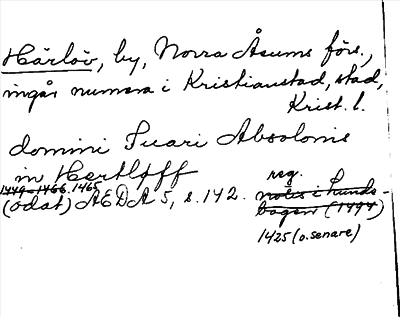 Härlöv, by, Norra Åsums förs.,
ingår numera i Kristianstad, stad,
Krist. l.
domini Tuari Absolonis
in Hertløff
1449-1466. 1465 reg.
(odat) AEDA 5, s. 142. notis i Lunds-
bogen (1494)
1425 (o. senare)